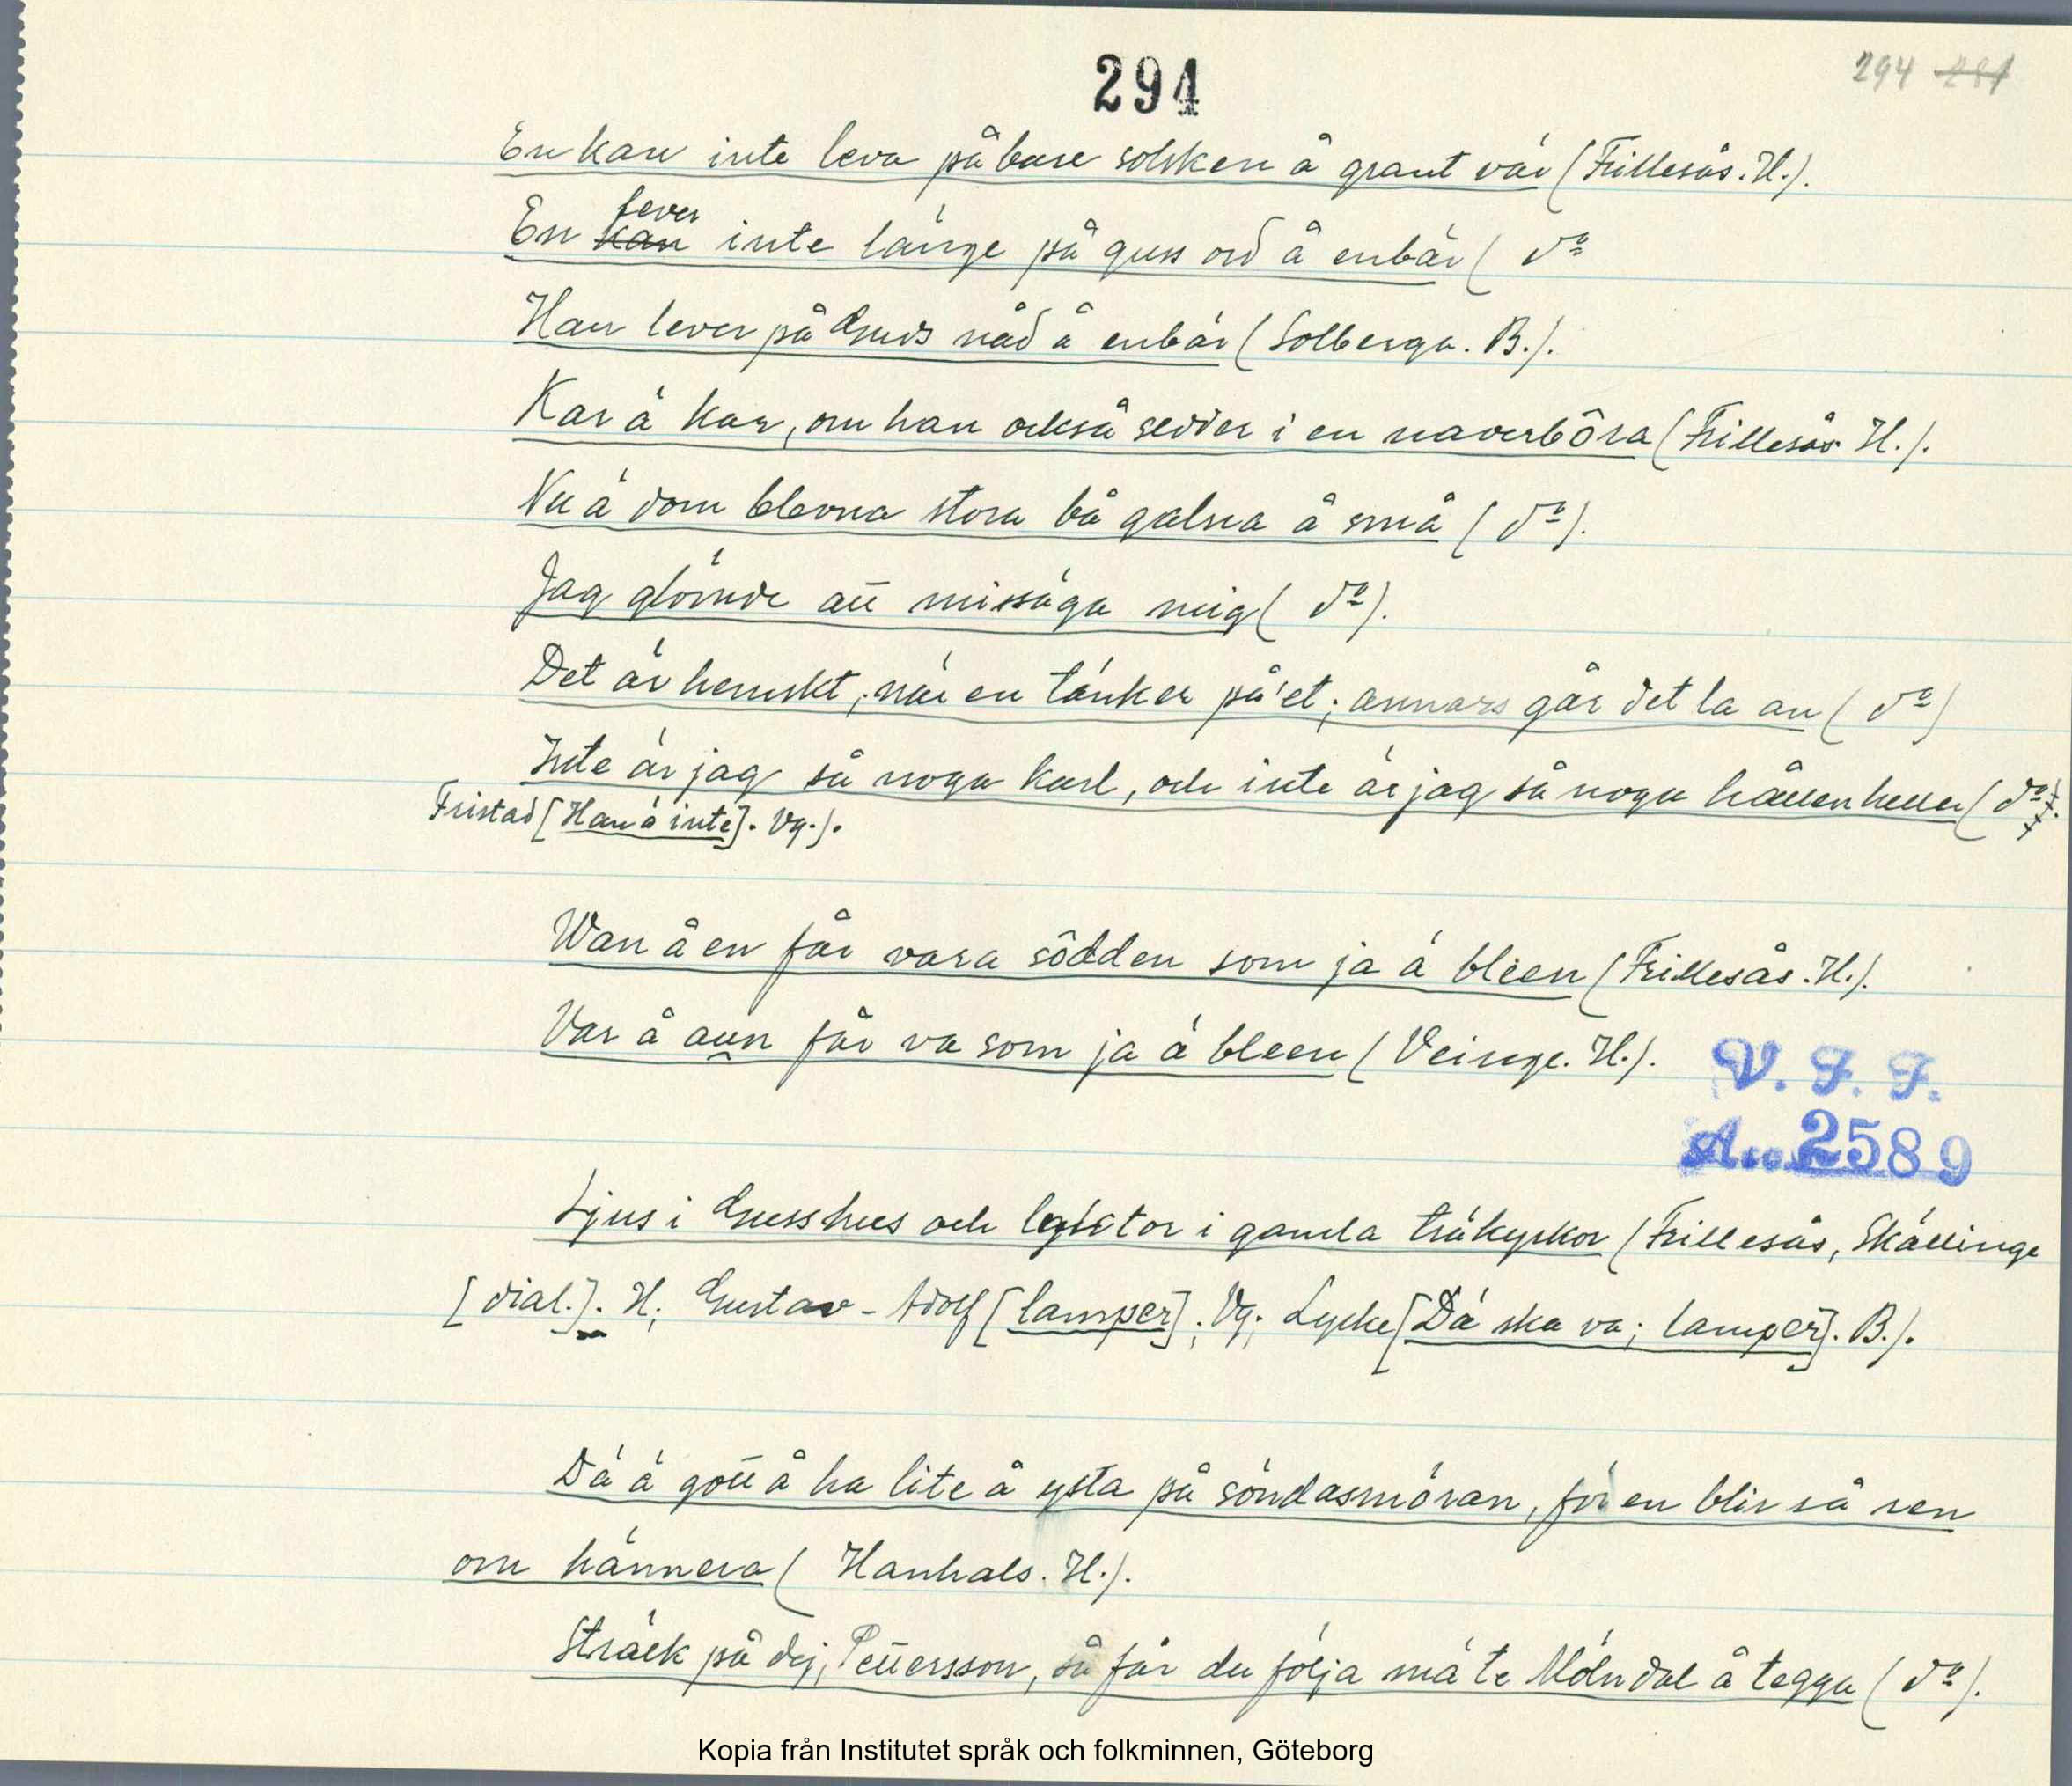 294
294 281
En kan inte leva på bare solsken å grant vär (Frillesås. H.).
lever
En kan inte länge på guss ord å enbär ( dº
Han lever på Guds nåd å enbär (Solberga. B.).
Kar ä kar, om han också sedder i en naverbôra (Frillesås H.).
Nu ä dom blevna stora bå galna å små ( dº ).
Jag glömde att missäga mig ( dº ).
Det är hemskt, när en tänker på'et; annars går det la an ( dº )
Inte är jag så noga karl, och inte är jag så noga hållen heller ( dº ).
Fristad [Han ä inte]. Vg.).
Wan å en får vara sôdden som ja ä bleen (Frillesås. H.).
Var å aun får va som ja ä bleen (Veinge. H.).
V. F. F.
Acc. 2589
Ljus i Gusshus och lyktor i gamla träkyrkor (Frillesås, Skällinge
[dial.]. H; Gustav-Adolf [lamper]. Vg; Lycke [Dä ska va; lamper]. B.).
Dä ä gott å ha lite å ysta på söndasmöran, för en blir så ren
om hännera ( Hanhals. H.).
Sträck på dej, Pettersson, så får du följa mä te Mölndal å tegga ( dº ).
Kopia från Institutet språk och folkminnen, Göteborg